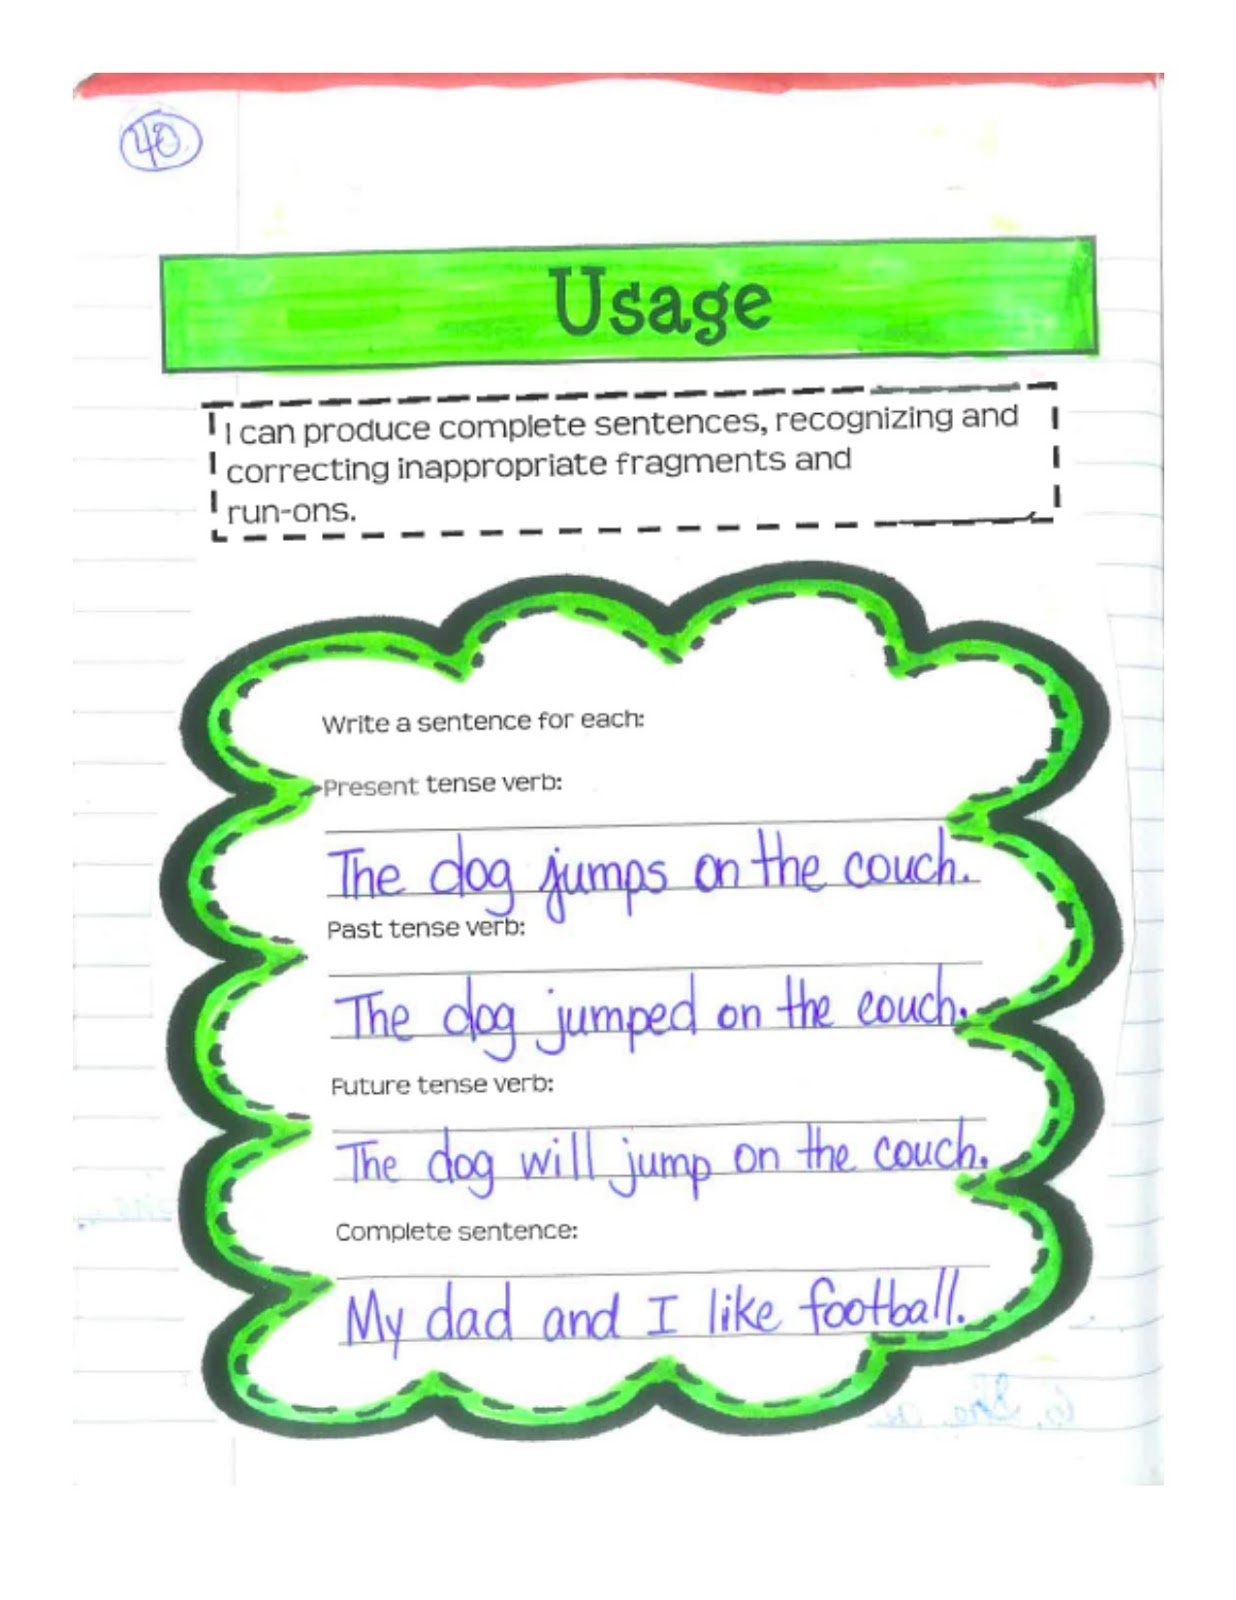 40
Usage
I can produce complete sentences, recognizing and
correcting inappropriate fragments and
run-ons.
Write a sentence for each:
Present tense verb:
The dog jumps on the couch.
Past tense verb:
The dog jumped on the couch.
Future tense verb:
The dog will jump on the couch.
Complete sentence:
My dad and I like football.